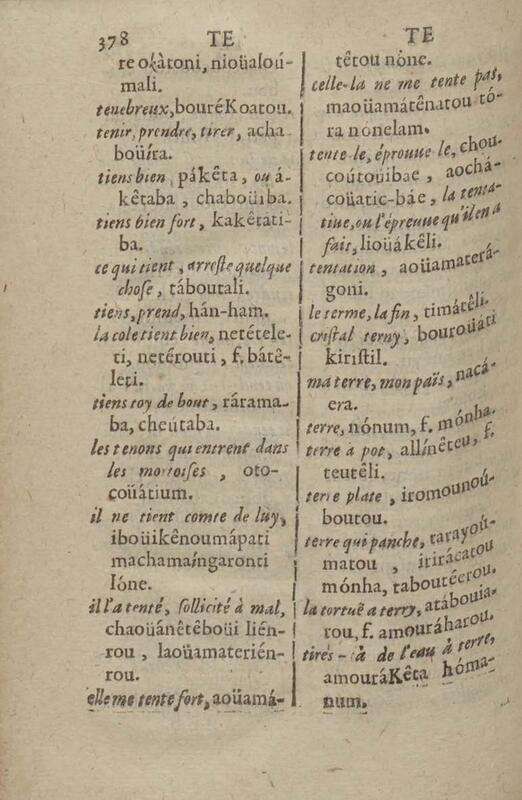 378 TE
re oҟàtoni, nioüaſoú-
mali.
tenebreux, bouréKoatou.
tenir, prendre, tirer, acha
boüíra.
tiens bien, pákêta, ou á-
kêtaba, chaboüiba.
tiens bien fort, kakêtàti-
ba.
ce qui tient, arreſte quelque
choſe, táboutali.
tiens, prend, hán-ham.
la cole tient bien, netétele-
ti, netérouti, f. bátê-
leti.
tiens toy de bout, rárama-
ba, cheútaba.
les tenons qui entrent dans
les mortoiſes, oto-
coüátium.
il ne tient comte de luy,
iboüikênoumápati
machamaíngaronti
lóne.
il l'a tenté, ſollicité à mal,
chaoüánêtêboüi lién-
rou, laoüamaterién-
rou.
elle me tente fort, aoüamá-
TE
têtou nóne.
celle-la ne me tente pas,
maoüamátênatou tó-
ra nonelam.
tente-le, éprouue-le, chou-
coútouibae, aochá-
coüatic-báe, la tenta-
tiue, ou l'épreuue qu'il en a
fait, lioüákêli.
tentation, aoüamaterá-
goni.
le terme, la fin, timátêli.
criſtal terny, bourouáti
kiriſtil.
ma terre, mon païs, nacá-
era.
terre, nónum, f. mónha.
terre à pot, allínêteu, f.
teutêli.
terre plate, iromounoú-
boutou.
terre qui panche, tarayoú-
matou, irirácatou
mónha, taboutéerou.
la tortuë a terry, atábouia-
rou, f. amouráharou.
tirés-là de l'eau à terre,
amouráKêta hóma-
num.